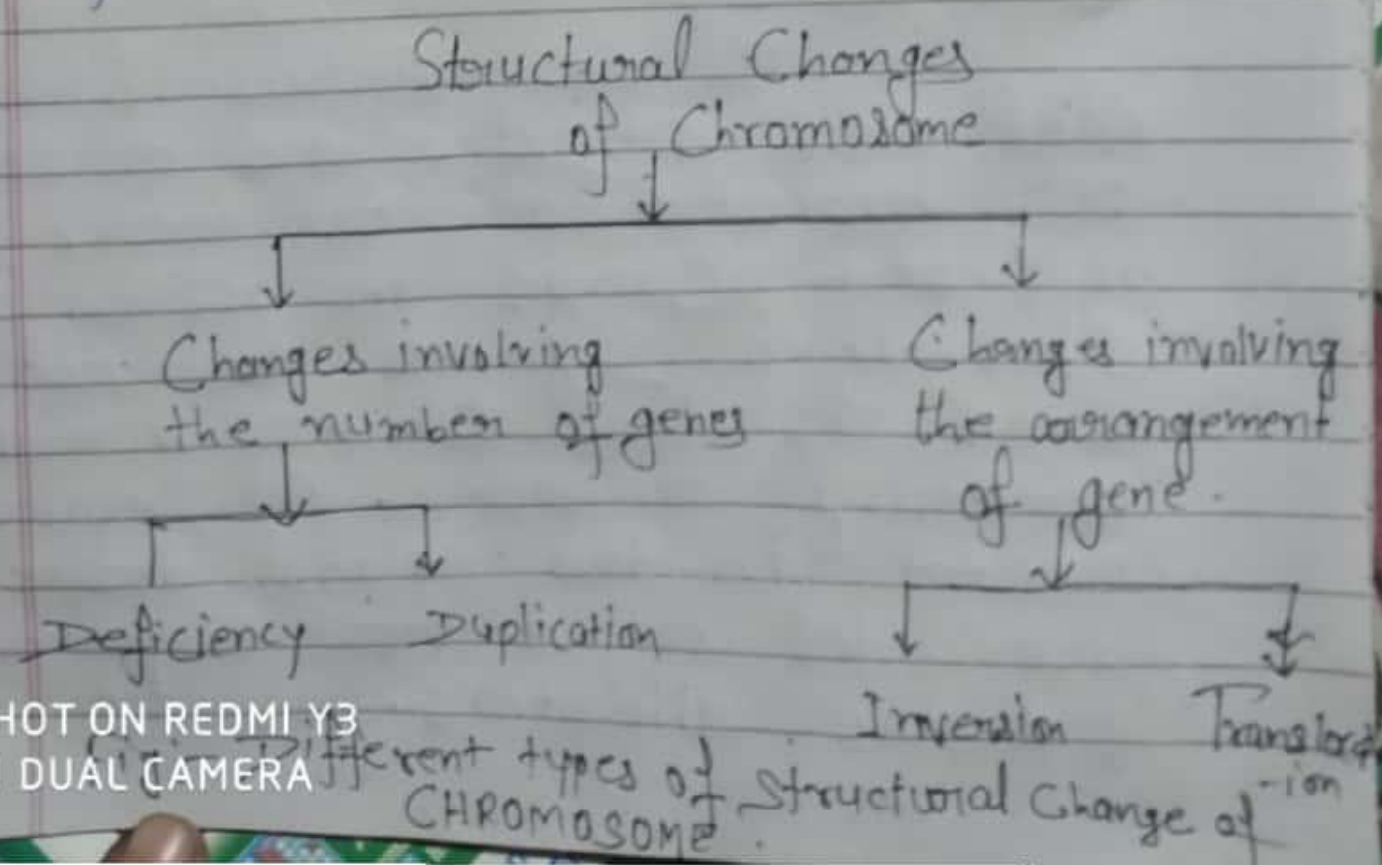 Structural Changes
of Chromosome
Changes involving
the number of genes
Changes involving
the arrangement
of gene.
Deficiency
Duplication
Inversion
Translocat
-ion
HOT ON REDMI Y3
DUAL CAMERA
Different types of Structural Change of
CHROMOSOME.